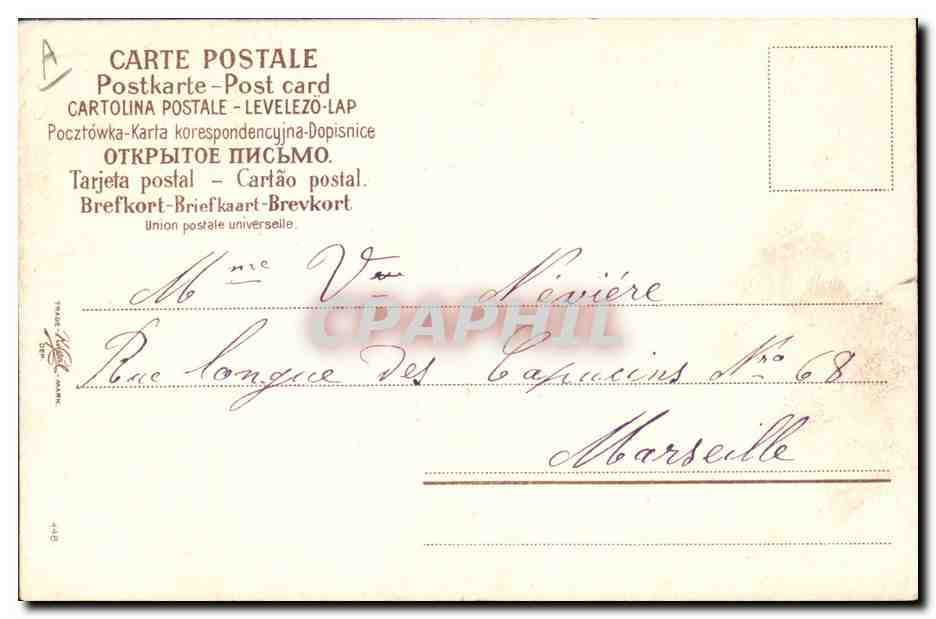 A
CARTE POSTALE
Postkarte-Post card
CARTOLINA POSTALE - LEVELEZÖ-LAP
Pocztówka-Karta korespondencyjna-Dopisnice
ОТКРЫТОЕ ПИСЬМО.
Tarjeta postal - Cartão postal.
Brefkort-Briefkaart-Brevkort
Union postale universelle.
Mme Vve Névière
CPAPHIL
Rue longue des Capucins Nro 68
Marseille
TRADE-MARK.
448